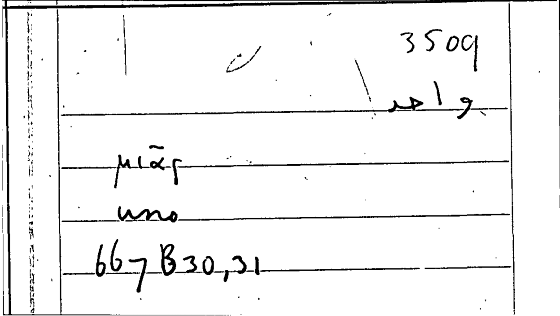 3509
واحد
μιᾶς
uno
667 B 30,31